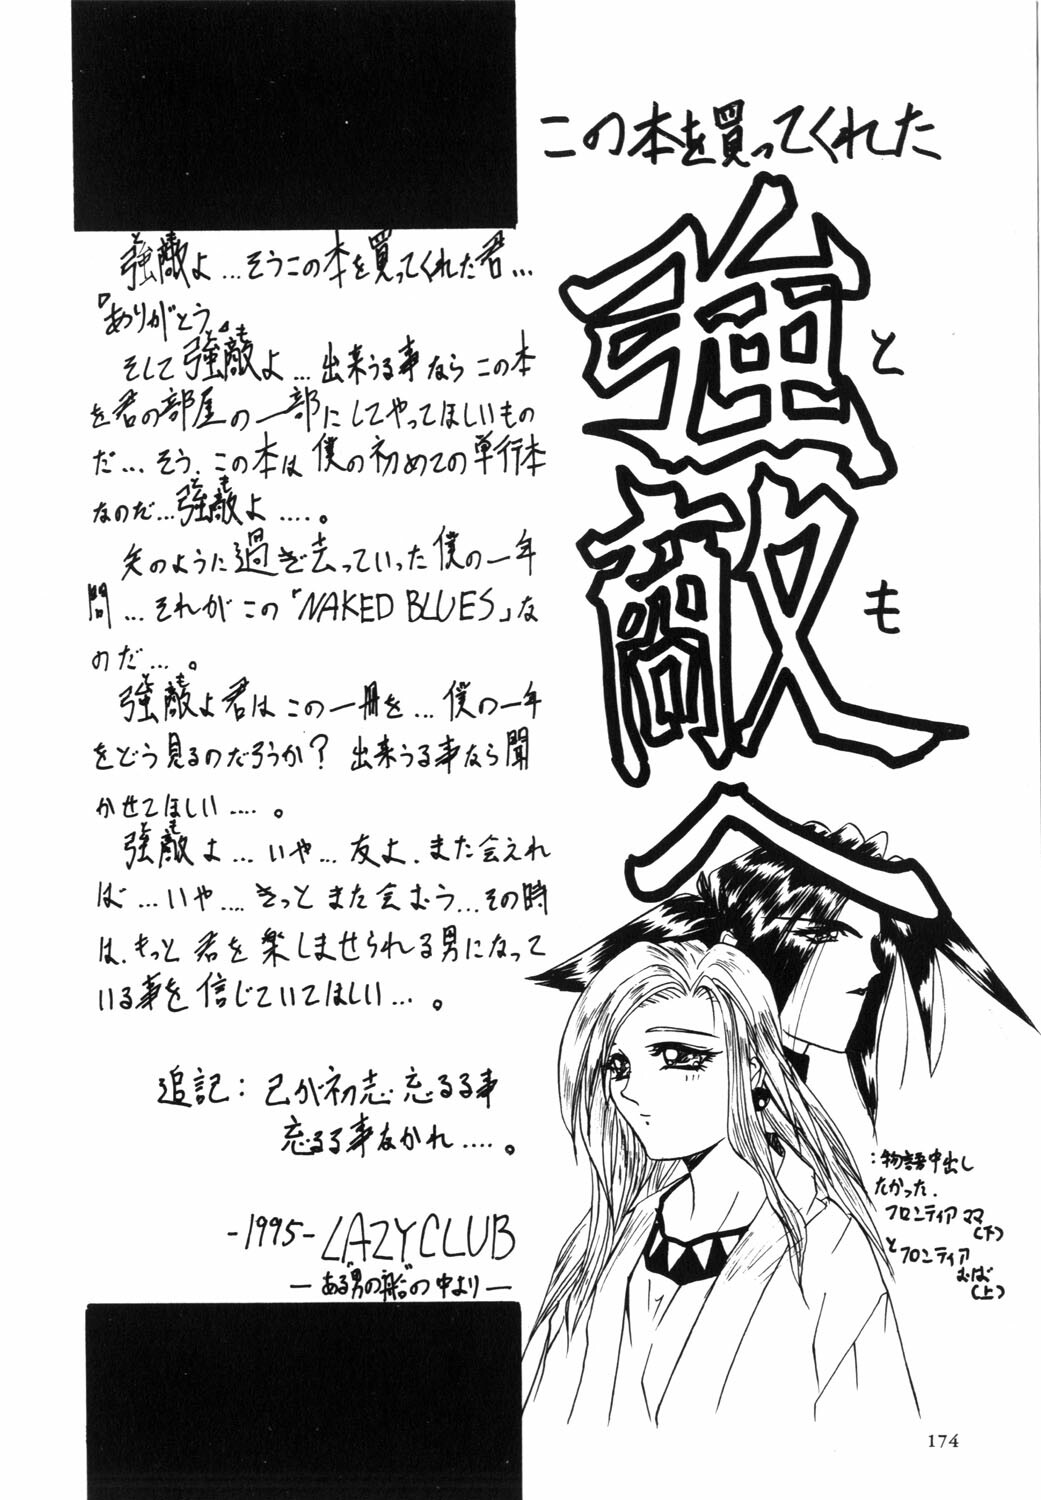 この本を買ってくれた
強敵へ
とも
強敵よ…そうこの本を買ってくれた君…
『ありがとう』
そして強敵よ…出来うる事ならこの本
を君の部屋の一部にしてやってほしいもの
だ…そう、この本は僕の初めての単行本
なのだ…強敵よ….。
矢のように過ぎ去っていった僕の一年
間…それがこの「NAKED BLUES」な
のだ…。
強敵よ君はこの一冊を…僕の一年
をどう見るのだろうか？出来うる事なら聞
かせてほしい….。
強敵よ…いや…友よ、また会えれ
ば…いや….きっとまた会おう…その時
は、もっと君を楽しませられる男になって
いる事を信じていてほしい…。
追記：己が初志忘るる事
忘るる事なかれ….。
-1995- LAZYCLUB
—ある"男の船"の中より—
：物語中出し
たかった、
フロンティアママ
(下)
とフロンティア
むば
(上)
174